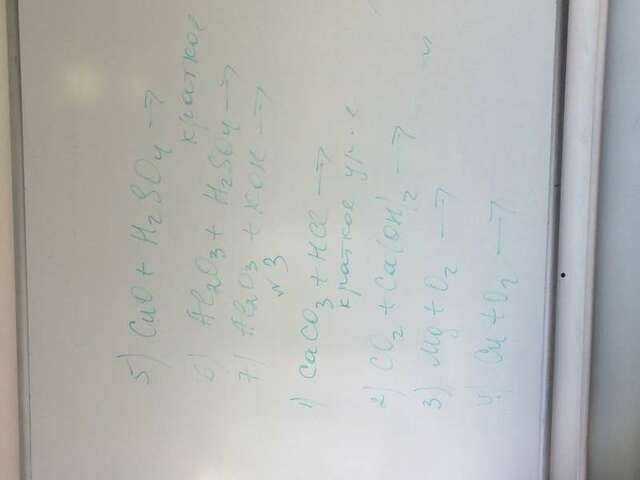 5) CuO + H₂SO₄ →
краткое
6) Al₂O₃ + H₂SO₄ →
7) Al₂O₃ + KOH →
№3
1) CaCO₃ + HCl →
краткое ур.
2) CO₂ + Ca(OH)₂ →
3) Mg + O₂ →
4) Cu + O₂ →